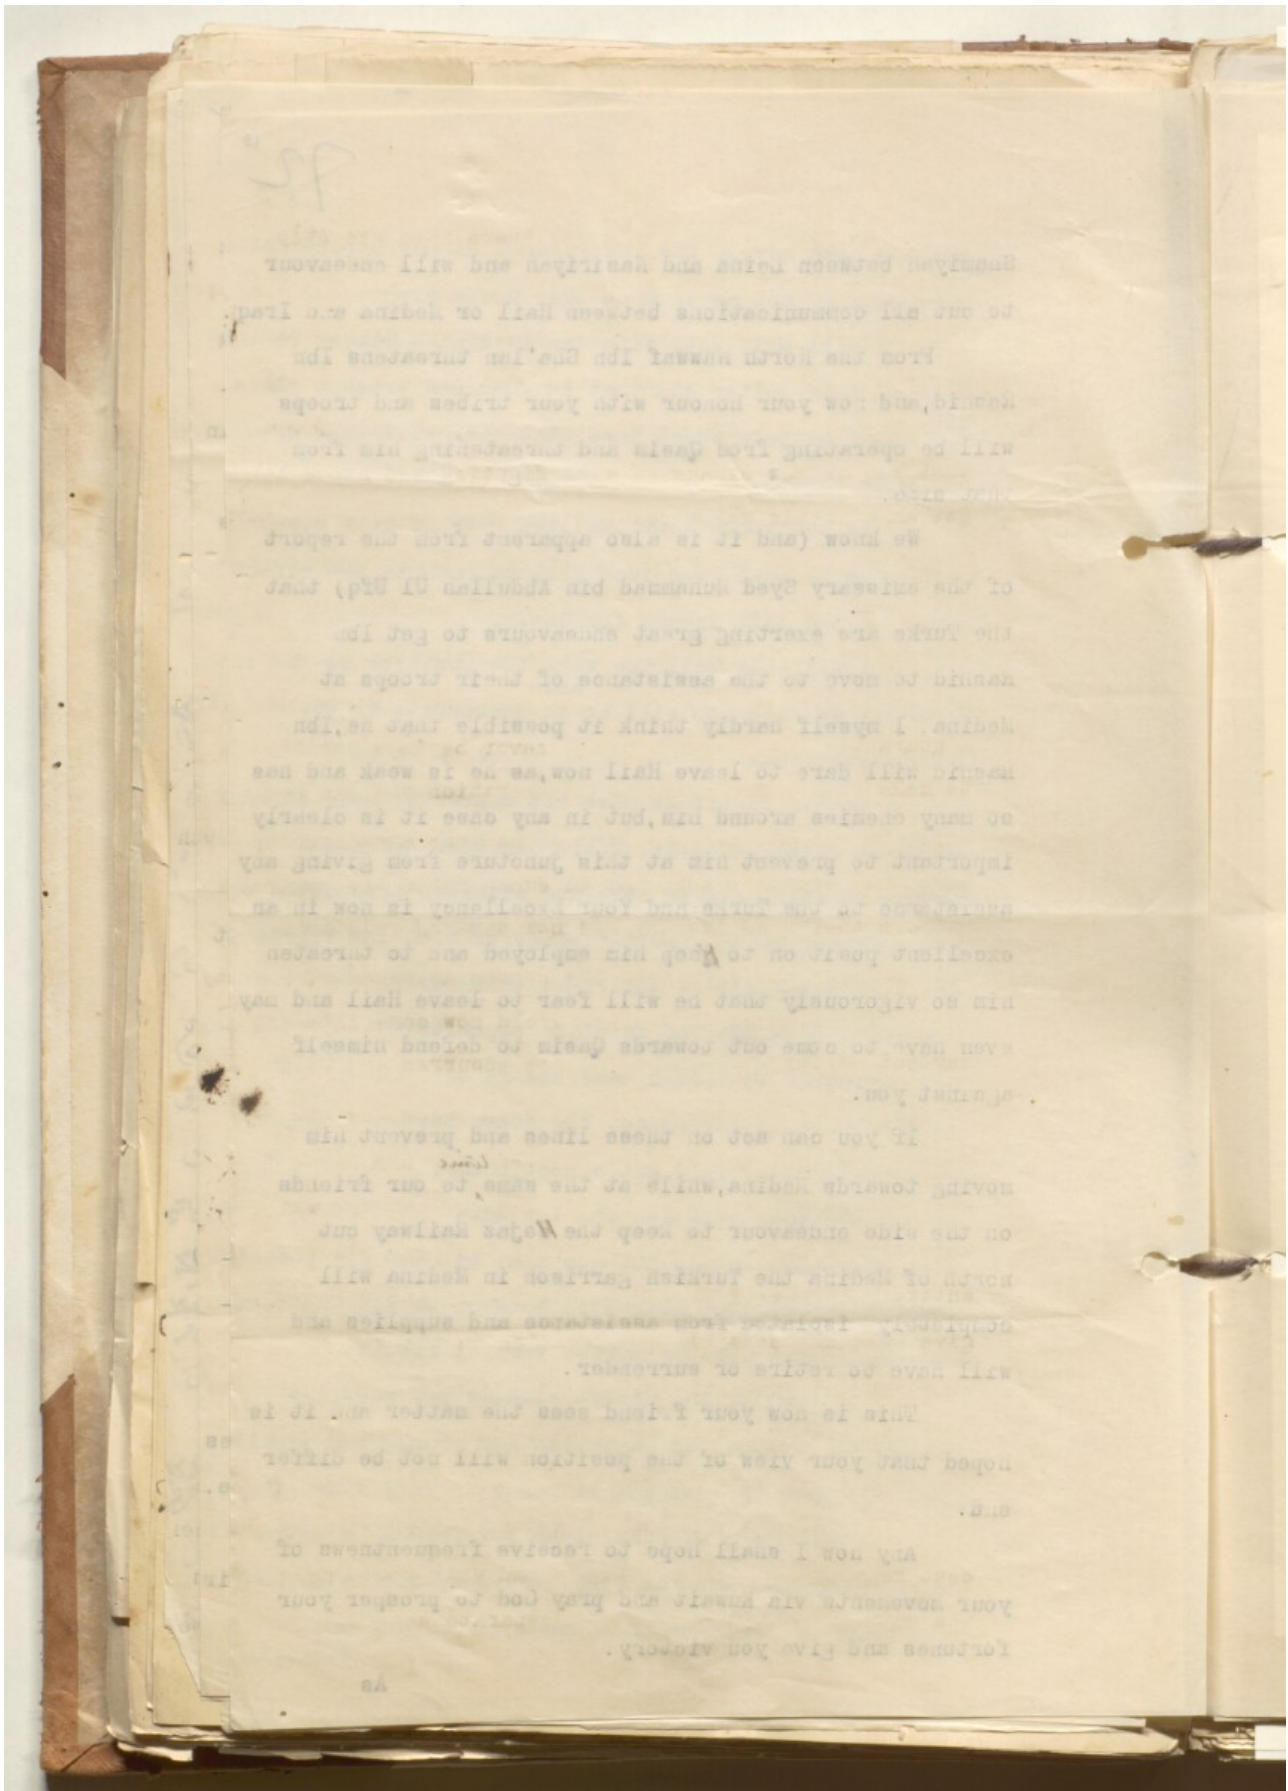 92
Shamiyah between Leina and Nasiriyah and will endeavour
to cut all communications between Hail or Medina and Iraq.
From the North Nawwaf Ibn Sha'lan threatens Ibn
Rashid,and now your honour with your tribes and troops
will be operating from Qasim and threatening him from
that side.
We know (and it is also apparent from the report
of the emissary Syed Muhammad bin Abdullah Ul Ufq) that
the Turks are exerting great endeavours to get Ibn
Rashid to move to the assistance of their troops at
Medina. I myself hardly think it possible that he,Ibn
Rashid will dare to leave Hail now,as he is weak and has
so many enemies around him,but in any case it is clearly
important to prevent him at this juncture from giving any
assistance to the Turks and Your Excellency is now in an
excellent posit on to Keep him employed and to threaten
him so vigorously that he will fear to leave Hail and may
even have to come out towards Qasim to defend himself
against you.
If you can act on these lines and prevent him
moving towards Medina,while at the same time to our friends
on the side endeavour to keep the Hejaz Railway cut
north of Medina the Turkish garrison in Medina will
completely isolated from assistance and supplies and
will have to retire or surrender.
This is how your friend sees the matter and it is
hoped that your view of the position will not be differ
ent.
Any how I shall hope to receive frequentnews of
your movements via Kuwait and pray God to prosper your
fortunes and give you victory.
As